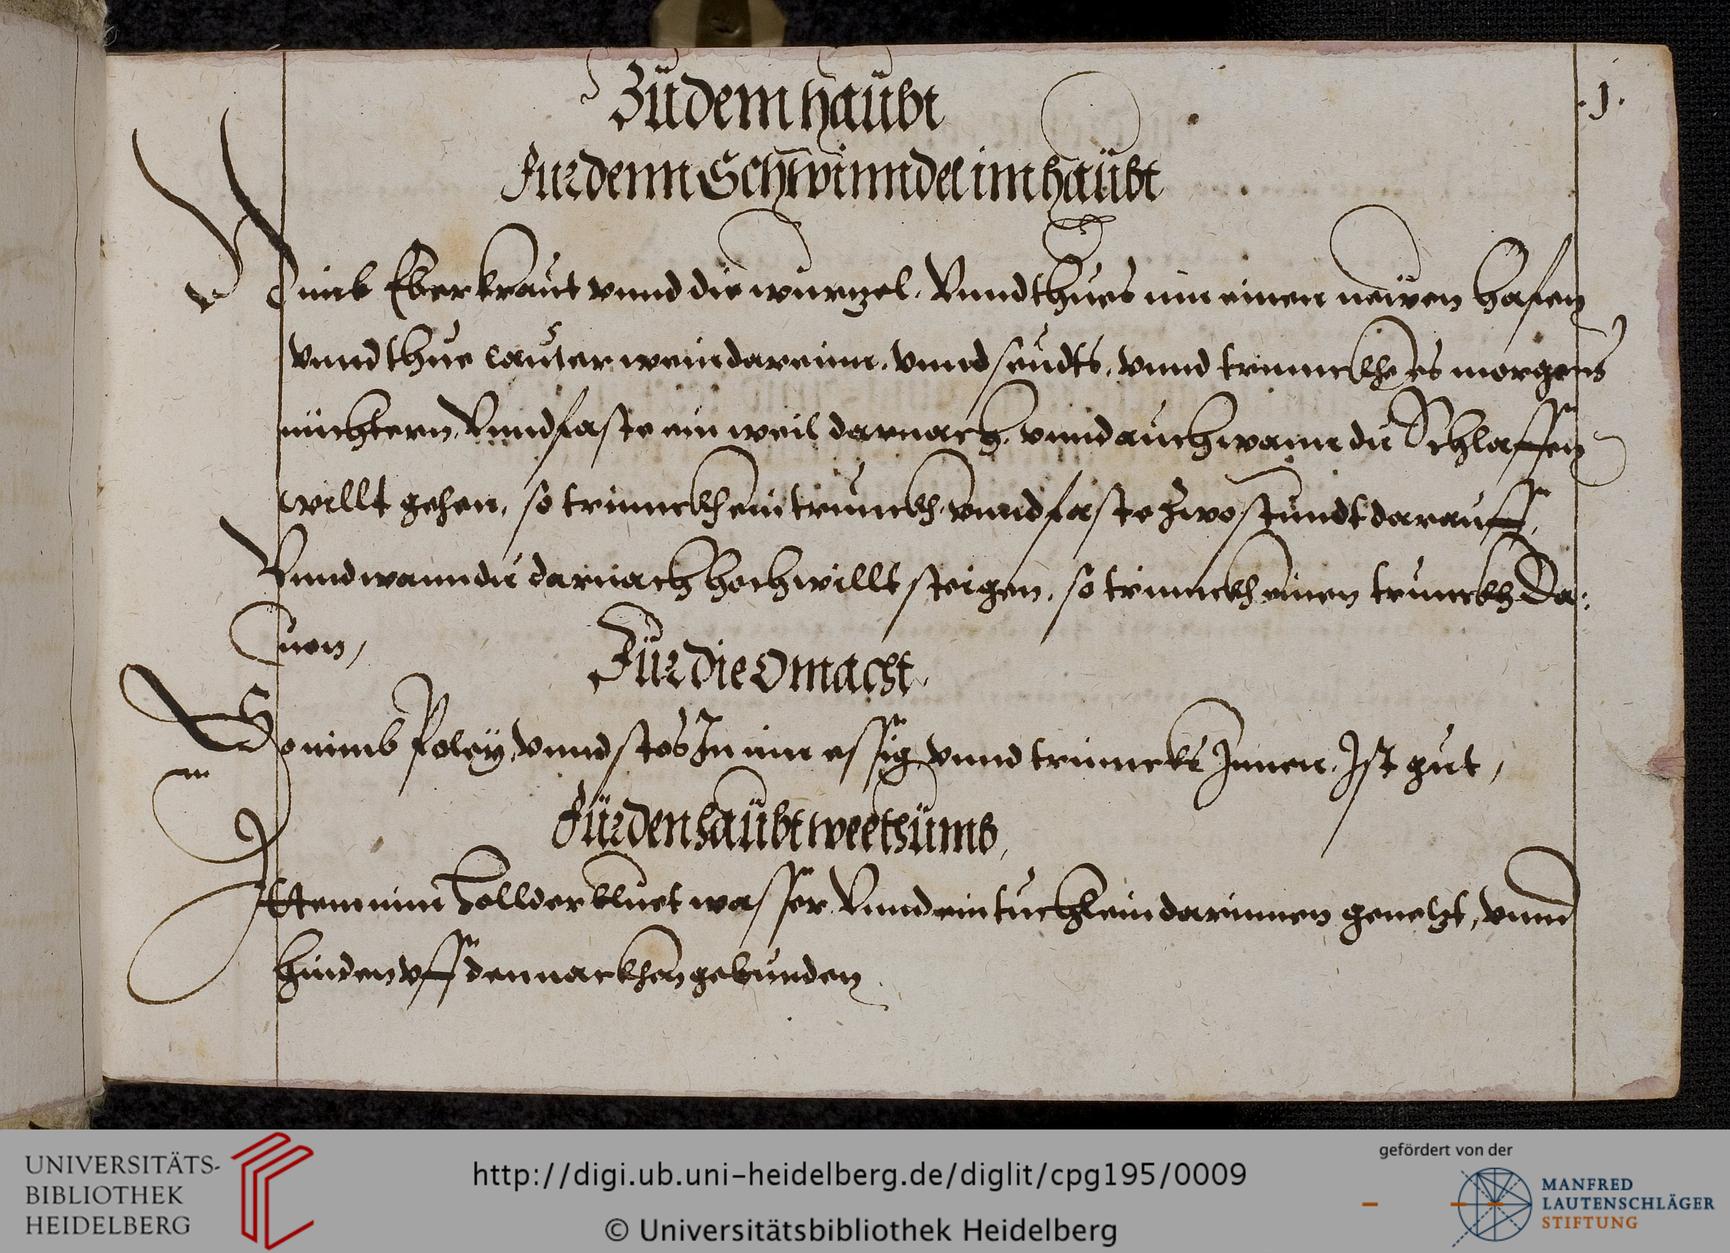 .1.
Zu dem haubt
Fur denn Schwinndel im haubt
Nimb Eberkraut vnnd die wurtzel, Vnnd thues inn einen neuwen hafen
vnnd thue lauter wein dareinn, vnnd seudts, vnnd trinnckhe es morgens
nüchtern, Vnnd faste ein weil darnach, vnnd auch wann du Schlaffen
willt gehen, so trinnckh ein trunckh, vnnd faste zwo stundt darauff,
Vnnd wann du darnach hoch willt steigen, so trinnckh einen trunckh Da:
uon,
Für die Omacht.
So nimb Poley, vnnd stos In inn essig, vnnd trinncks Innen, Ist gut,
Für den haubt weethumb,
Item nim Hollderbluet wasser, Vnnd ein tuchlein darinnen genetzt, vnnd
hinden vff den nackhen gebunden
UNIVERSITÄTS-
BIBLIOTHEK
HEIDELBERG
http://digi.ub.uni-heidelberg.de/diglit/cpg195/0009
© Universitätsbibliothek Heidelberg
gefördert von der
MANFRED
LAUTENSCHLÄGER
STIFTUNG